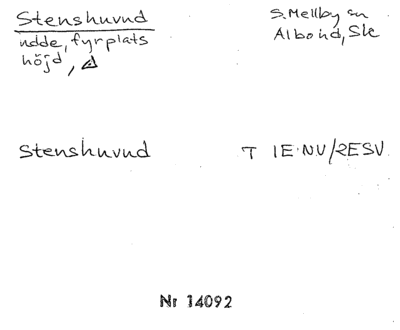 Stenshuvud
udde, fyrplats
höjd,
S. Mellby sn
Albo hd, Sk
Stenshuvud
T 1E·NV/2ESV
Nr 14092